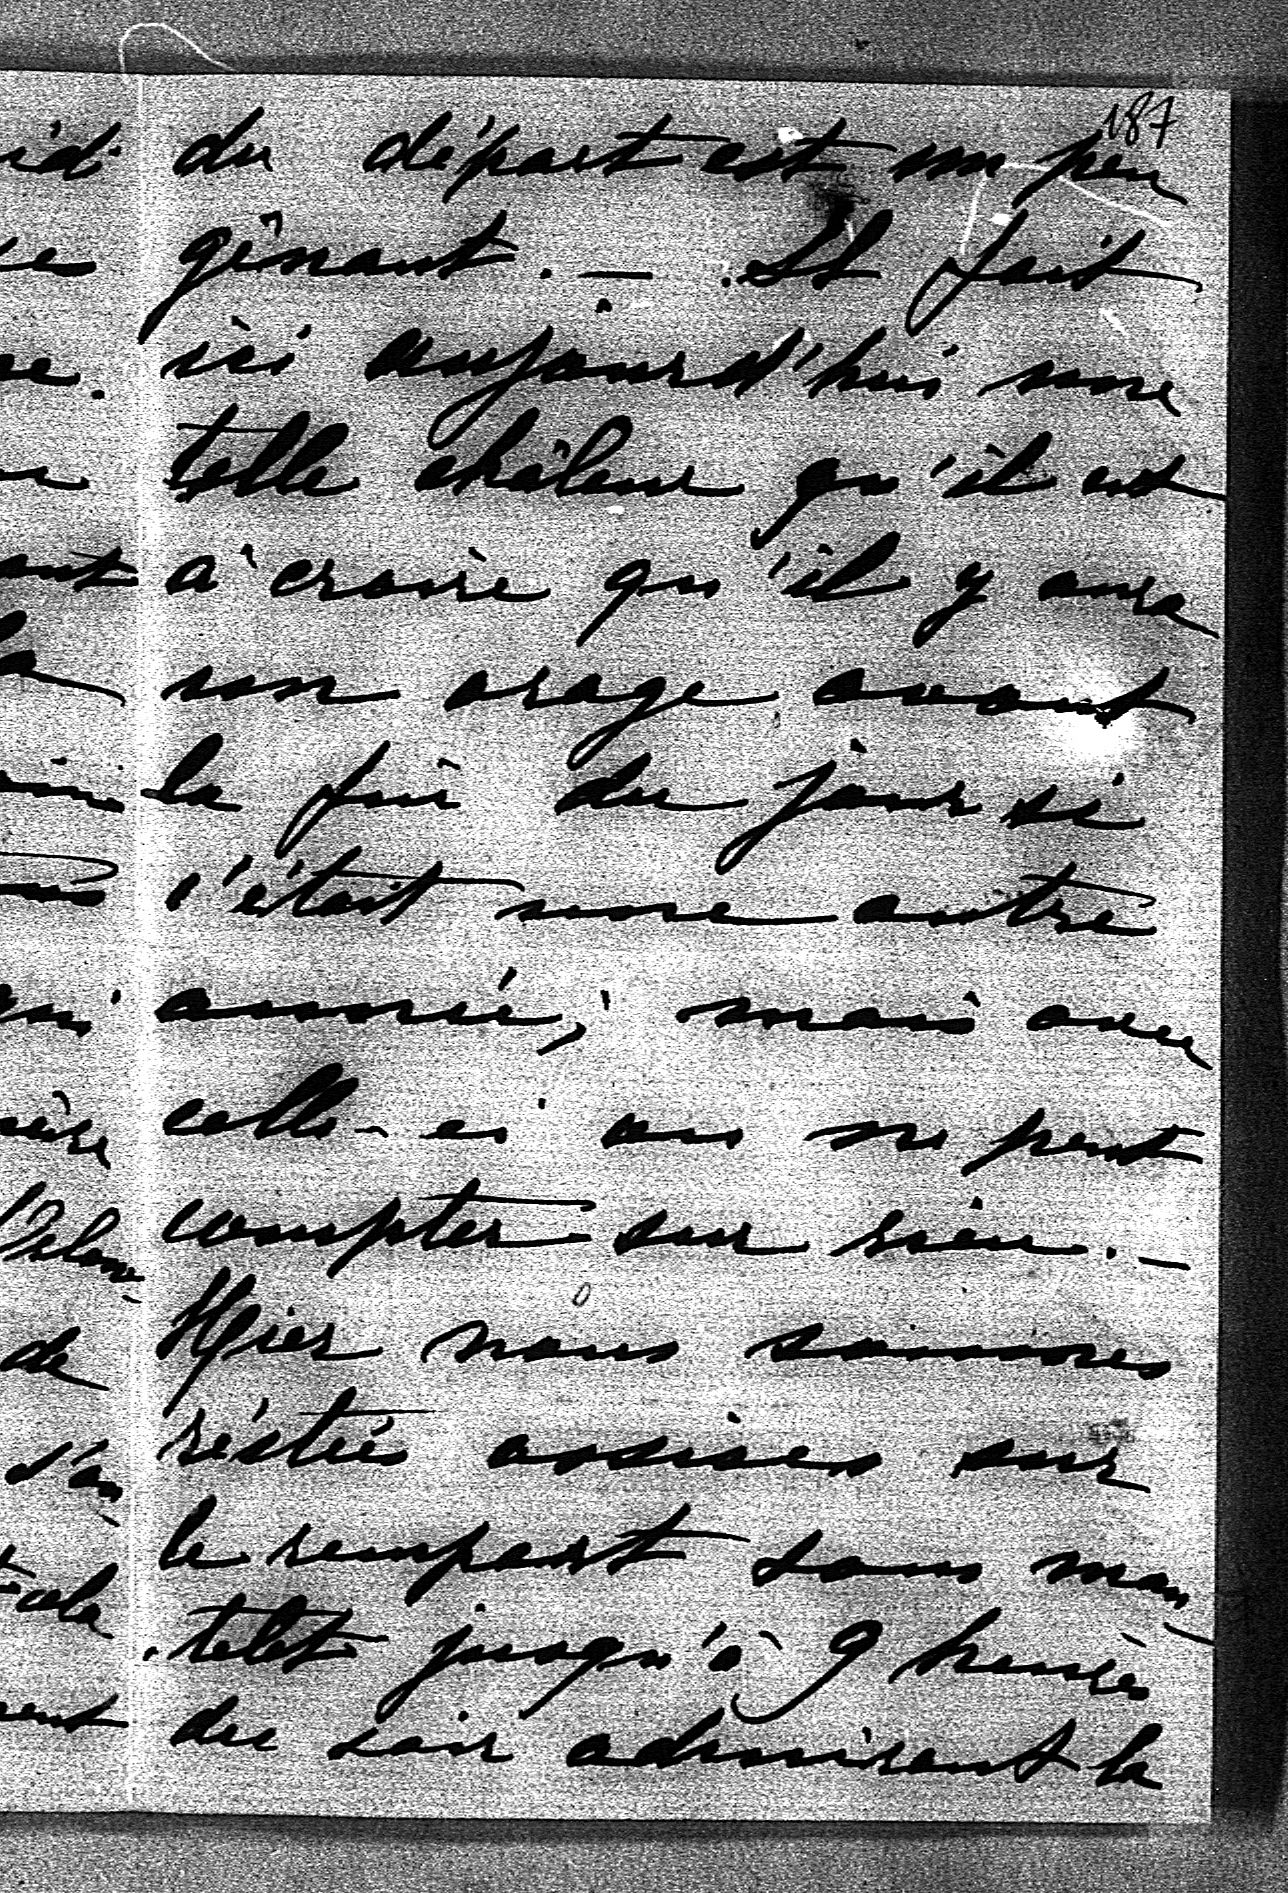 187
du départ est un peu
gênant. — Il fait
ici aujourd'hui une
telle châleur qu'il est
à croire qu'il y aura
un orage avant
la fin du jour si
c'était une autre
année, mais avec
celle-ci on ne peut
compter sur rien. —
Hier nous sommes
réstés assises sur
le rempart sans man-
telet jusqu'à 9 heures
du soir admirant la